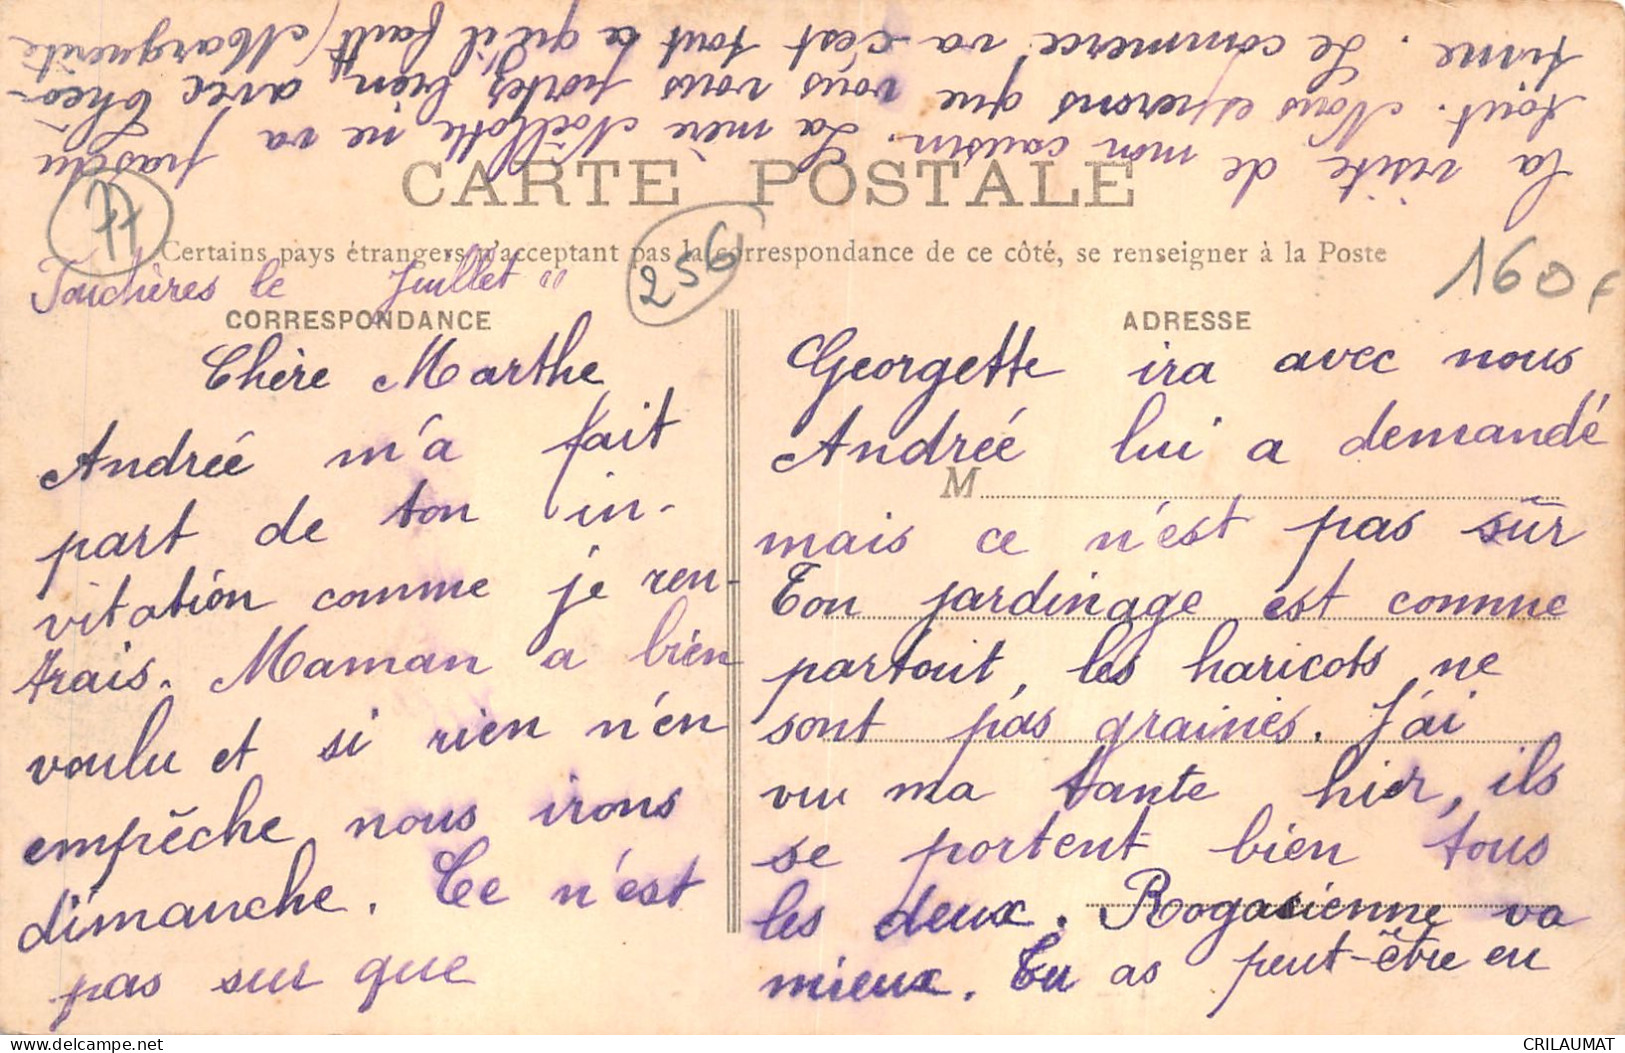 CARTE POSTALE
Certains pays étrangers n'acceptant pas la correspondance de ce côté, se renseigner à la Poste
77
256
160F
CORRESPONDANCE
ADRESSE
M
Jouchères le Juillet "
Chère Marthe
Andrée m'a fait
part de ton in-
vitation comme je ren-
trais. Maman a bien
voulu et si rien n'en
empêche nous irons
dimanche. Ce n'est
pas sur que
Georgette ira avec nous
Andrée lui a demandé
mais ce n'est pas sûr
Ton jardinage est comme
partout, les haricots ne
sont pas grainés. J'ai
vu ma tante hier, ils
se portent bien tous
les deux. Rogasienne va
mieux. Tu as peut-être eu
la visite de mon cousin. La mère Noëllotte ne va pas du
tout. Nous espérons que vous vous portez bien, avec Théo-
time. Le commerce va c'est tout ce qu'il faut (Marguerite
CRILAUMAT